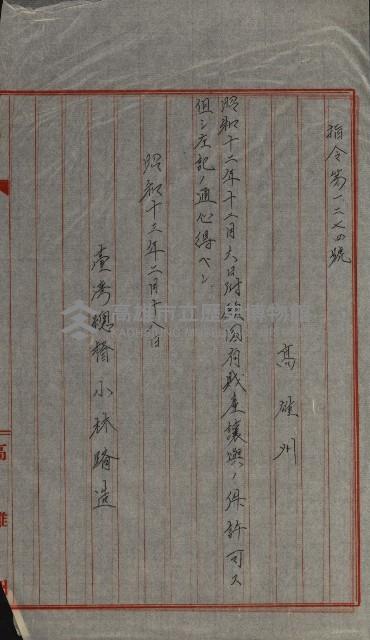 指令第一二七四號
高雄州
昭和十二年十二月六日附稟國有財產讓與ノ件許可ス
但シ左記ノ通心得ベシ
昭和十三年二月十八日
臺灣總督小林躋造
高雄州
高雄市立歷史博物館